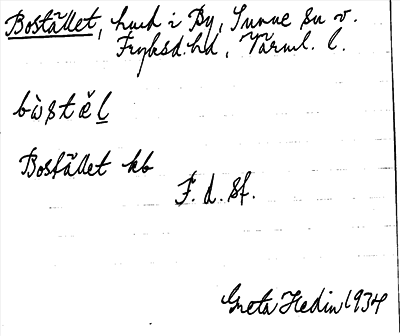 Bostället, hmd i By, Sunne sn v.
Fryksd. hd, Värml. l.
bὼstĕl
Bostället kb
F. d. st.
Greta Hedin 1934